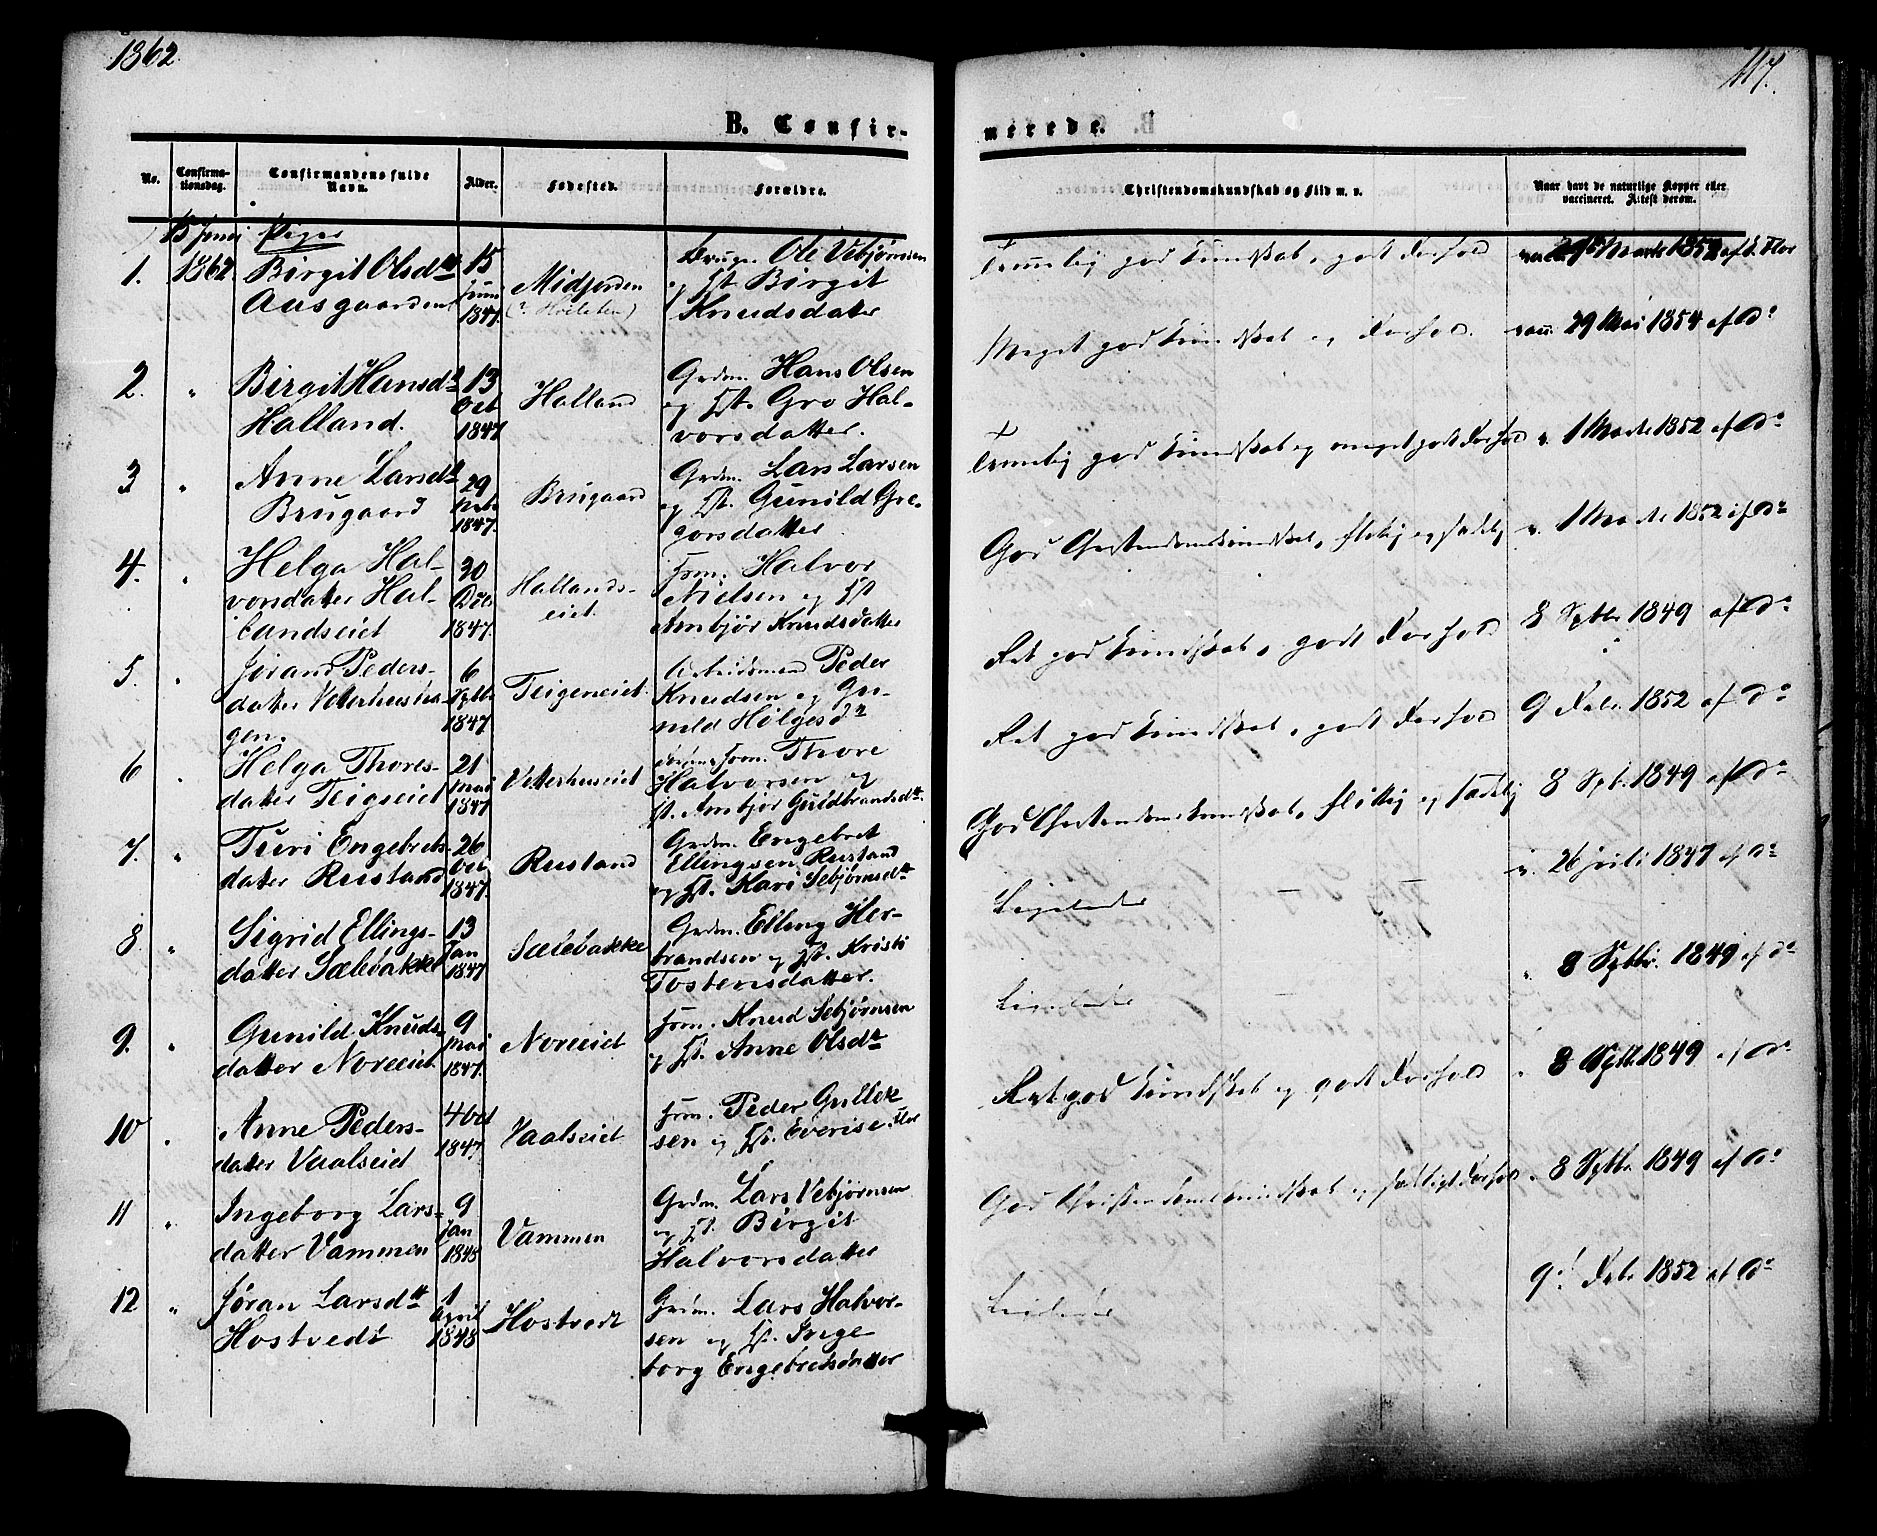 1862
117.
B. Confir-
merede.
No.
Confirma-
tionsdag.
Confirmandens fulde
Navn.
Alder.
Fødested.
Forældre.
Christendomskundskab og Flid m. v.
Naar havt de naturlige Kopper eller
vaccineret. Attest derom.
15 Juni
1862
Piger
1.
Birgit Olsdtr
Aasgaarden
15
Juni
1847.
Midjorden
Ole Vebjørnsen
og Birgit
Knudsdatter
Temmelig god Kundskab, godt Forhold
29 Marts 1852 af
2.
"
Birgit Hansdtr
Halland.
13
Oct
1847
Halland
Grdm. Hans Olsen
og Gro Hal-
vorsdatter.
Meget god Kundskab og Forhold.
29 Mai 1854 af Do
3
"
Anne Larsdtr
Brugaard
29
1847.
Brugaard
Grdm. Lars Larsen
og Gunild Gre-
gorsdatter
Temmelig god Kundskab og meget godt Forhold
v. 1 Marts 1852 af Do
4.
"
Helga Hal-
vorsdatter Hal-
landseiet
30
1847.
Hallands-
eiet.
Halvor
Nielsen og
Ambjør Knudsdatter
God Christendomskundskab, flittig og sædelig
v. 1 Marts 1852 af Do
5.
"
Jørand Peders-
datter
gen.
6
Septbr
1847.
Teigeneiet.
Arbeidsmand Peder
Knudsen og Gu-
nild Helgesdtr
Ret god Kundskab, godt Forhold
8 Septbr 1849 af Do
6
"
Helga Thores-
datter Teigseiet
21
Mai
1847
Vetterhuseiet
Thore
Halvorsen og
Ambjør Guldbrandsdtr.
Ret god Kundskab, godt Forhold
9 Febr 1852 af Do
7.
"
Turi Engebrets-
datter Rustand
26
Oct
1847.
Rustand
Grdm. Engebret
Ellingsen Rustand
og Kari Sebjørnsdtr
God Christendomskundskab, flittig og sædelig
8 Sept. 1849 af Do
8.
"
Sigrid Ellings-
datter Sælebakke
13
Jan
1847
Sælebakke
Grdm. Elling Her-
brandsen og Kristi
Tostensdatter.
Ligeledes
v. 26 1847 af Do
9.
"
Gunild Knuds-
datter Noreeiet
9
Mai
1847.
Noreeiet
Knud Sebjørnsen
og Anne Olsdtr
Ligeledes
" 8 Septbr. 1849 af Do
10
"
Anne Peders-
datter Vaalseiet
4 Oct
1847.
Vaalseiet
Peder Gullik
sen og
Ret god Kundskab og godt Forhold
" 8 Septbr 1849 af Do
11
"
Ingeborg Lars-
datter Vammen
9
Jan
1848
Vammen
Grdm. Lars Vebjørnsen
og Birgit
Halvorsdatter
God Christendomskundskab og Forhold
8 Septbr 1849 af Do
12
"
Jøran Larsdtr
Hostvedt
1
April
1848
Hostvedt
Grdm. Lars Halvor-
sen og Inge
borg Engebretsdatter
Ligeledes
9 Febr 1852 af Do